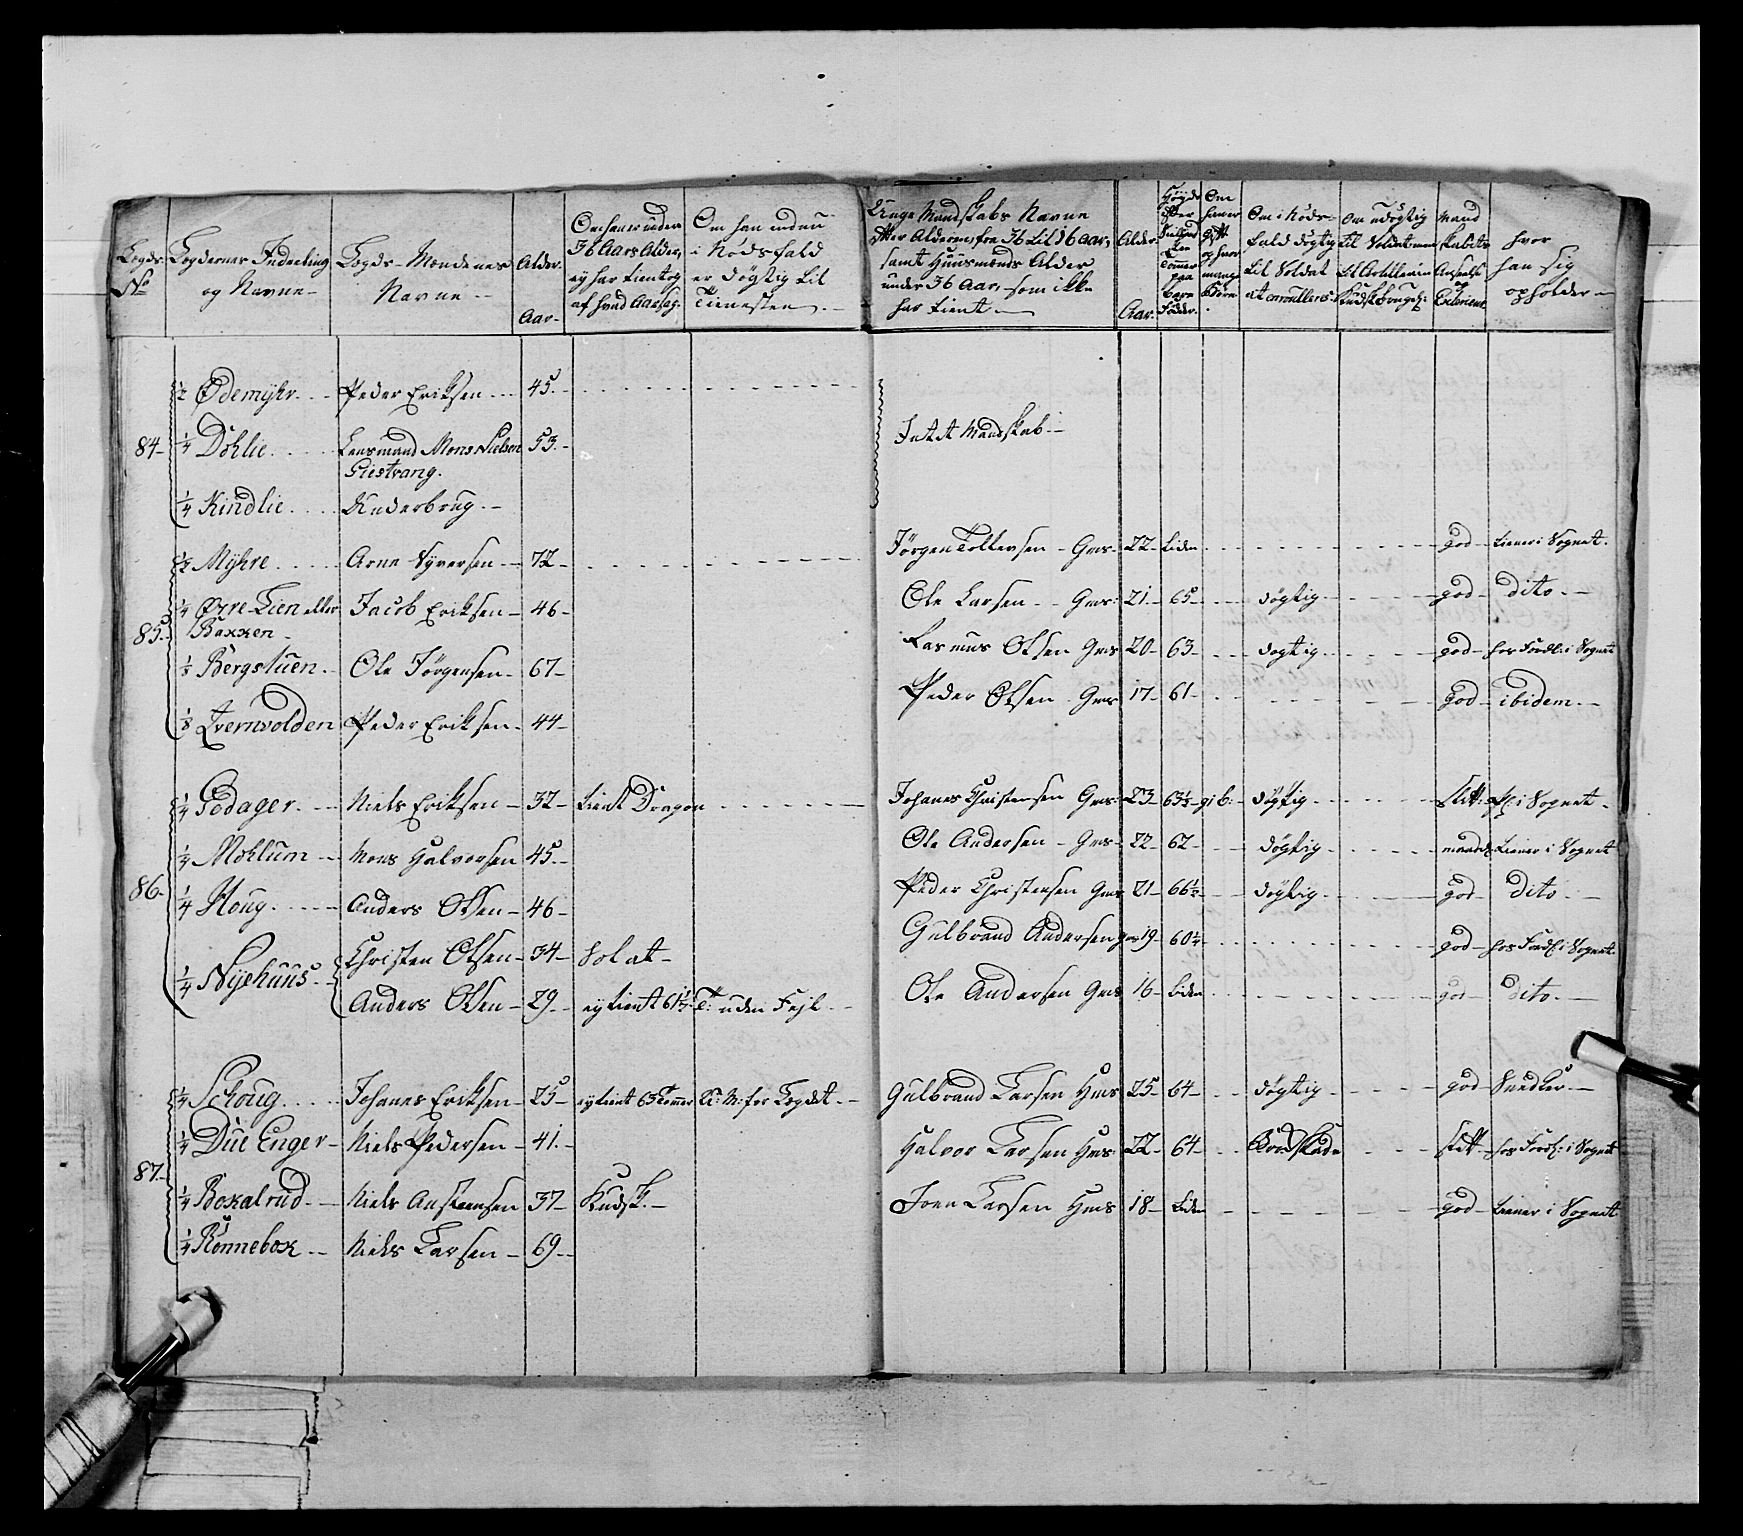 Lægds No
Lægdernes Inddeeling og Navne
Lægds Mændenes Navne
Alder Aar
Om han er under 36 Aars Alder, ey har tient og af hvad Aarsag
Om han endnu i Nødsfald er dögtig til Tienesten
Unge Mandskabs Navne efter Alderen, fra 36 til 16 Aar, samt Huusmænds Alder under 36 Aar, som ikke har tient
Alder Aar
Höyde
Om han er gift og hvor mange Börn
Om i Nöds fald dögtig til Soldat
Om udögtig til Soldat men til Artilleriem
Mand skabets
hvor han sig opholder
1/2 Ödemÿhr Peder Eriksen 45
84 1/4 Döhlie Lensmand Mons Nielsen 53
Giestvang
Intet Mandskab
1/4 Kindlie Underbrug
1/2 Mÿhre Arne Syversen 72
Jörgen Tollevsen Gms 22 liden god tiener i Sognet
85 1/4 Øvre Lien eller Jacob Eriksen 46
Baxken
Ole Larsen Gms 21 65 dögtig god dito
1/8 Bergstuen Ole Jörgensen 67
Rasmus Olsen Gms 20 63 dögtig god hos Fordl: i Sognet
1/8 Qvernvolden Peder Eriksen 44
Peder Olsen Gms 17 61 god ibidem
1/4 Godager Niels Eriksen 32 tient Dragon
Johanes Christensen Gms 23 63½ gi b: dögtig slet i Sognet
1/4 Mohlum Mons Halvorsen 45
Ole Andersen Gms 22 62 dögtig maadel tiener i Sognet
86 1/4 Houg Anders Olsen 46
Peder Christensen Gms 21 66½ dögtig god dito
1/4 Nÿehuus Christen Olsen 34 Solat
Gulbrand Andersen Gms 19 60¼ god hos Fordl: i Sognet
Anders Olsen 29 ey tient 61½ T: uden Feyl
Ole Andersen Gms 16 liden god dito
1/4 Schoug Johanes Eriksen 25 ey tient 63 Tommer N: M: for Lægdet
Gulbrand Larsen Hms 25 64 dögtig god Snedker
1/4 Due Enger Niels Pedersen 41
Halvor Larsen Hms 22 64 slet hos Fordl: i Sognet
87 1/4 Boxalrud Niels Anstensen 37 Kudsk
Joen Larsen Hms 18 liden god tiener i Sognet
1/4 Rönnebox Niels Larsen 69